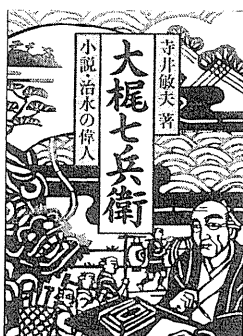 寺井敏夫 著
大梶七兵衛
小説・治水の偉人